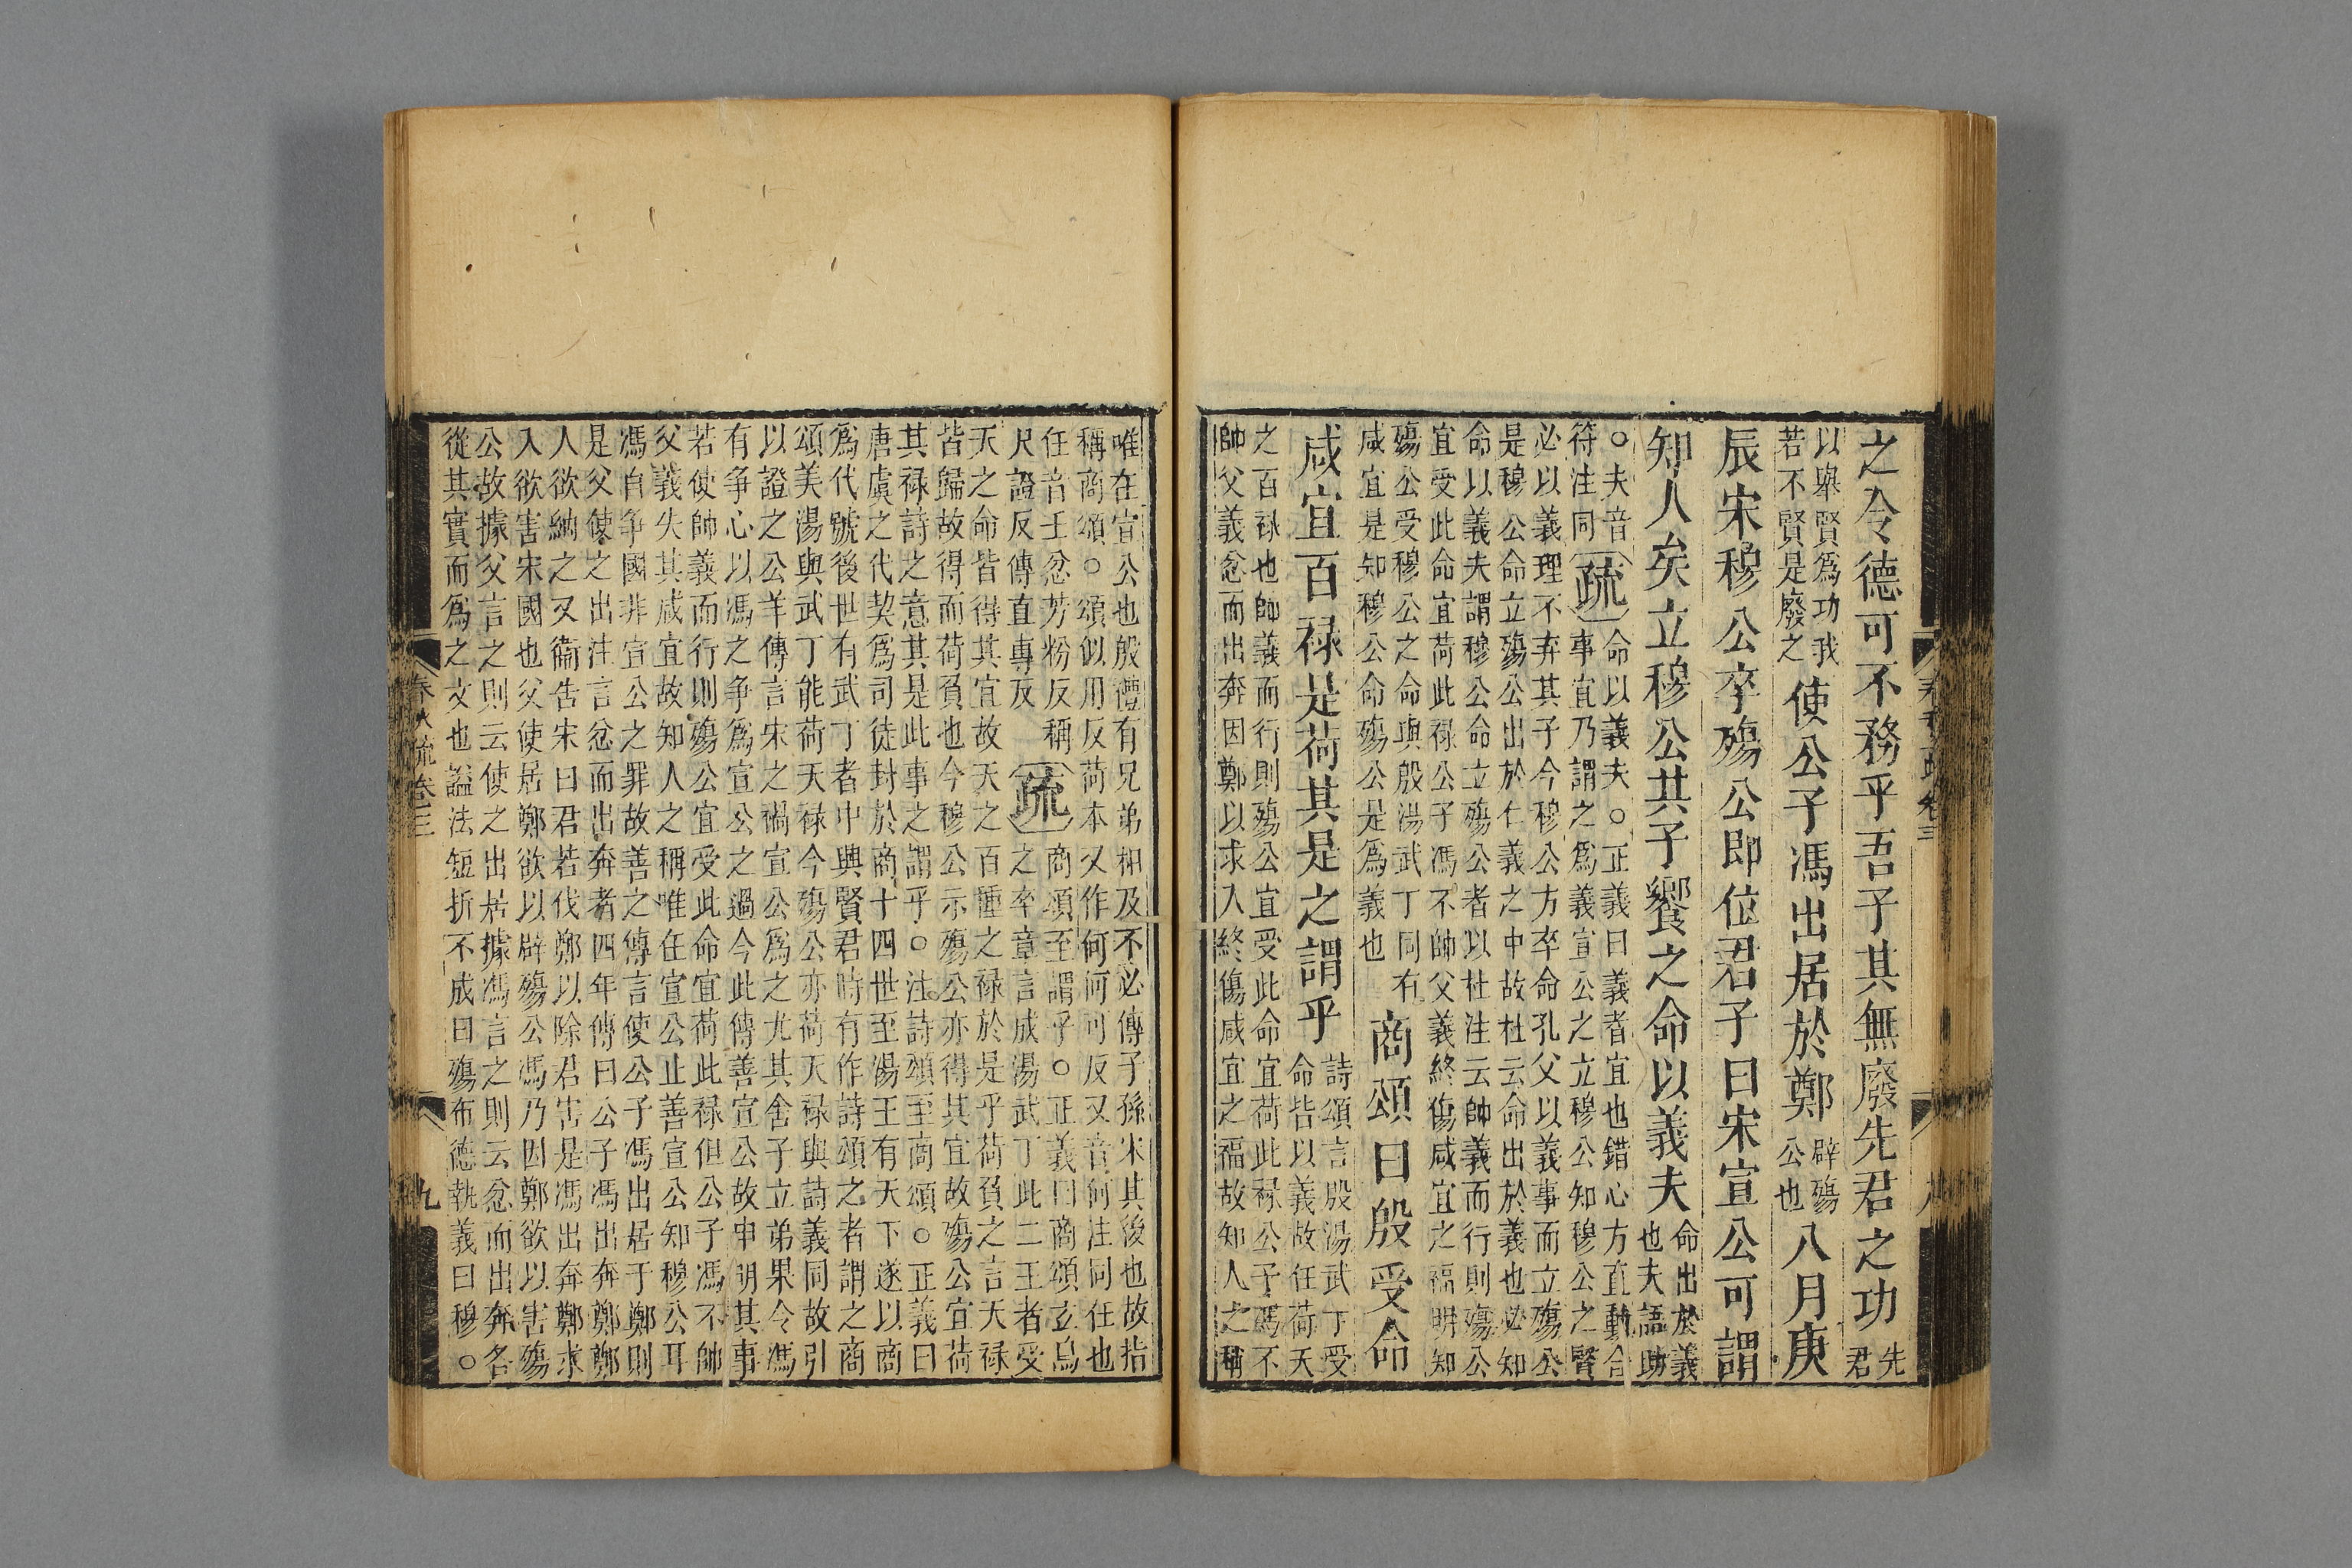 之令德可不務乎吾子其無廢先君之功先
君
以舉賢爲功我
若不賢是廢之使公子馮出居於鄭辟殤
公也八月庚
辰宋穆公卒殤公即位君子曰宋宣公可謂
知人矣立穆公其子饗之命以義夫命出於義
也夫語助
○夫音
符注同疏命以義夫○正義曰義者宜也錯心方直動合
事宜乃謂之爲義宣公之立穆公知穆公之賢
必以義理不弃其子今穆公方卒命孔父以義事而立殤公
是穆公命立殤公出於仁義之中故杜云命出於義也必知
命以義夫謂穆公命立殤公者以杜注云帥義而行則殤公
宜受此命宜荷此祿公子馮不帥父義終傷咸宜之福明知
殤公受穆公之命與殷湯武丁同有
咸宜是知穆公命殤公是爲義也商頌曰殷受命
咸宜百祿是荷其是之謂乎詩頌言殷湯武丁受
命皆以義故任荷天
之百祿也帥義而行則殤公宜受此命宜荷此祿公子馮不
帥父義忿而出奔因鄭以求入終傷咸宜之福故知人之稱
唯在宣公也殷禮有兄弟相及不必傳子孫宋其後也故指
稱商頌○頌似用反荷本又作何何可反又音何注同任也
任音壬忿芳粉反稱
尺證反傳直專反疏商頌至謂乎○正義曰商頌玄鳥
之卒章言成湯武丁此二王者受
天之命皆得其宜故天之百種之祿於是乎荷負之言天祿
皆歸故得而荷負也今穆公示殤公亦得其宜故殤公宜荷
其祿詩之意其是此事之謂乎○注詩頌至商頌○正義曰
唐虞之代契爲司徒封於商十四世至湯王有天下遂以商
爲代號後世有武丁者中興賢君時有作詩頌之者謂之商
頌美湯與武丁能荷天祿今殤公亦荷天祿與詩義同故引
以證之公羊傳言宋之禍宣公爲之尤其舍子立弟果令馮
有爭心以馮之爭爲宣公之過今此傳善宣公故申明其事
若使帥義而行則殤公宜受此命宜荷此祿但公子馮不帥
父義失其咸宜故知人之稱唯任宣公止善宣公知穆公耳
馮自爭國非宣公之罪故善之傳言使公子馮出居于鄭則
是父使之出注言忿而出奔者四年傳曰公子馮出奔鄭鄭
人欲納之又衞告宋曰君若伐鄭以除君害是馮出奔鄭求
入欲害宋國也父使居鄭欲以辟殤公馮乃因鄭欲以害殤
公故據父言之則云使之出居據馮言之則云忿而出奔各
從其實而爲之文也謚法短折不成曰殤布德執義曰穆○
春秋疏卷三
九